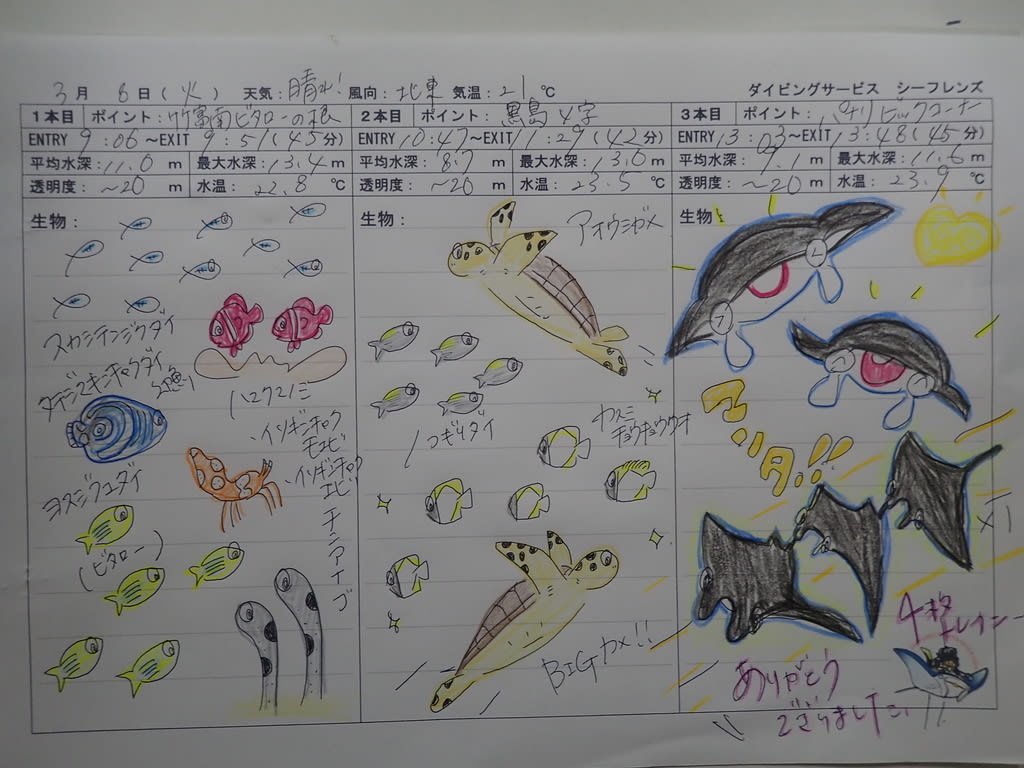 3月 6日(火) 天気: 晴れ! 風向: 北東 気温: 21℃ ダイビングサービス シーフレンズ
1本目 ポイント: 竹富南ビタローの根
ENTRY 9:06~EXIT 9:51(45分)
平均水深: 11.0 m 最大水深: 13.4 m
透明度: ~20 m 水温: 22.8 ℃
生物:
スカシテンジクダイ
タテジマキンチャクダイ
(幼魚)
ハマクマノミ
ヨスジフエダイ
(ビタロー)
・イソギンチャク
モエビ
・イソギンチャク
エビ!
チンアナゴ
2本目 ポイント: 黒島 V字
ENTRY 10:47~EXIT 11:29(42分)
平均水深: 8.7 m 最大水深: 13.0 m
透明度: ~20 m 水温: 23.5 ℃
生物:
アオウミガメ
ノコギリダイ
カスミ
チョウチョウウオ
BIGカメ!!
3本目 ポイント: パナリビッグコーナー
ENTRY 13:03~EXIT 13:48(45分)
平均水深: 9.1 m 最大水深: 11.6 m
透明度: ~20 m 水温: 23.9 ℃
生物
マンタ!!
×1
4枚
トレイン
ありがとう
ございました。